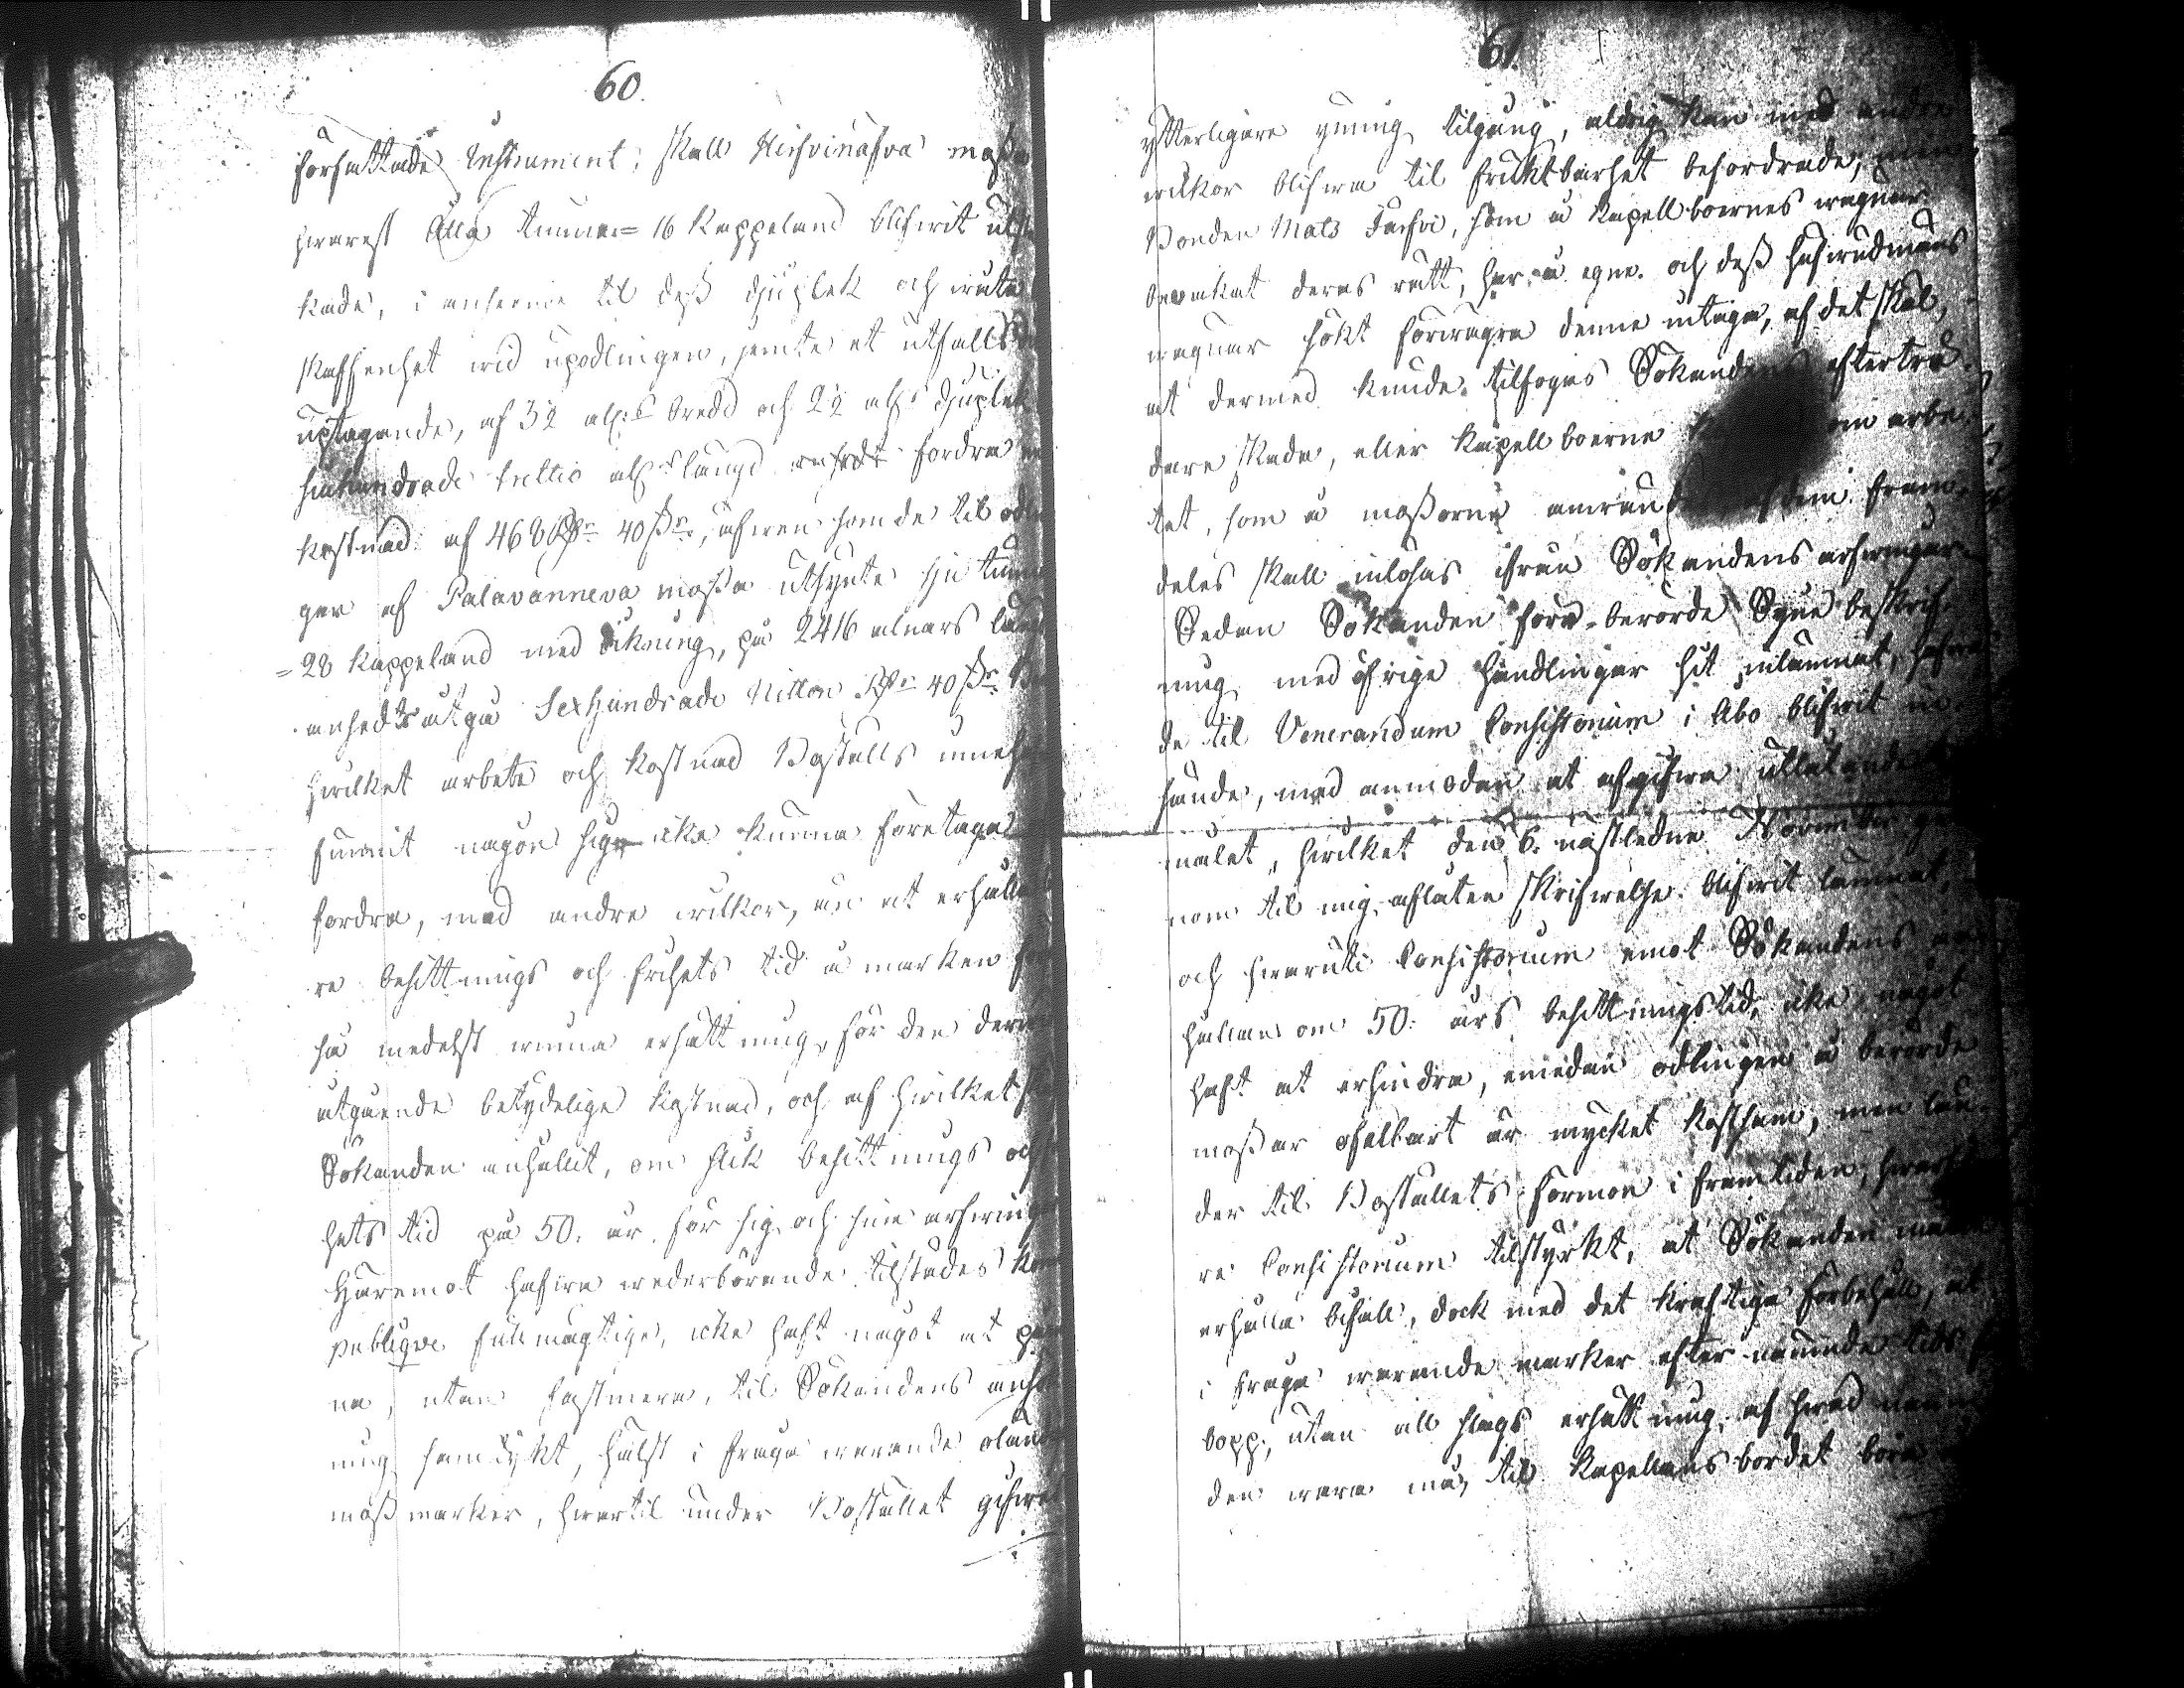 60.
författade Instrument, skall Hirsvinäfva måsse
hwarest Ålla tunne= 16 Kappeland blifwit utsy
kade, i anseende til dess djuplek och
skaffenhet wid upodlingen, jemte et utfalls
uptagande, af 3½ aln:s bredd och 2½ aln:s djuplek
siuhundrade trettio aln:s längd fordra en
kostnad af 468 Rdr 40 s:r, äfwen som de til odlin
gar af Palavanneva måssa utsynte Siu tunne
=28 kappeland med dikning, på 2416 alnars läng
anseddts utgå Sexhundrade Nitton Rdr 40 s:r
hwilket arbete och kostnad Boställs inneh
funnit någon sig icke kunna företaga
fordra, med andre wilkor, än at erhålla
re besittnings och frihets tid å marken
så medelst winna ersättning, för den derwid
utgående betydelige kostnad, och af hwilket
Sökanden anhållit, om slik besittnings och
hets tid på 50. år, för sig och sine arfwingar
Häremot hafwa wederbörande tilstädes kom
publiqve fullmägtige, icke haft något at på
na, utan fastmera, til Sökandens anhå
ning samtykt, hälst i fråga warande oländ
moss marker, hwartil under Bostället gifwes
61.
ytterligare ymnig tilgång, aldrig kan med andre
wilkor blifwa til fruktbarhet befordrade, men
Bonden Mats Jacfvi, som å Kapellboernes wägnar
bewakat deras rätt, har å egne och dess hufwudmans
wägnar sökt förwägra denne intaga, af det skäl,
at dermed kunde tilfogas Sökandens efterträ-
dare skada, eller Kapellboerne om arbe-
tet, som å mossorne anwän dem fram-
deles skall inlösas ifrån Sökandens arfwingar.
Sedan Sökanden förr berörde Syne beskrif-
ning med öfrige handlingar hit inlämnat, hafwa
de til Venerandum Consistorium i Åbo blifwit
sände, med anmodan at afgifwa utlåtande
målet, hwilket den 6. nästledne November ge
nom til mig aflåten skrifwelse blifwit lämnat,
och hwaruti Consistorium emot Sökandens an
hållan om 50. års besittningstid, icke något
haft at erhindra, emedan odlingen å berörde
mossar ofelbart är mycket kostsam, men län
der til Boställets förmon i framtiden, hwarföre
re Consistorium tilstyrkt, at Sökanden må
erhålla bifall, dock med det kraftiga förbehåll, at
i fråga warande marker efter nämnde tids
lopp, utan all slags ersättning, af hwad namn
den wara må, til Kapellansbordet böra